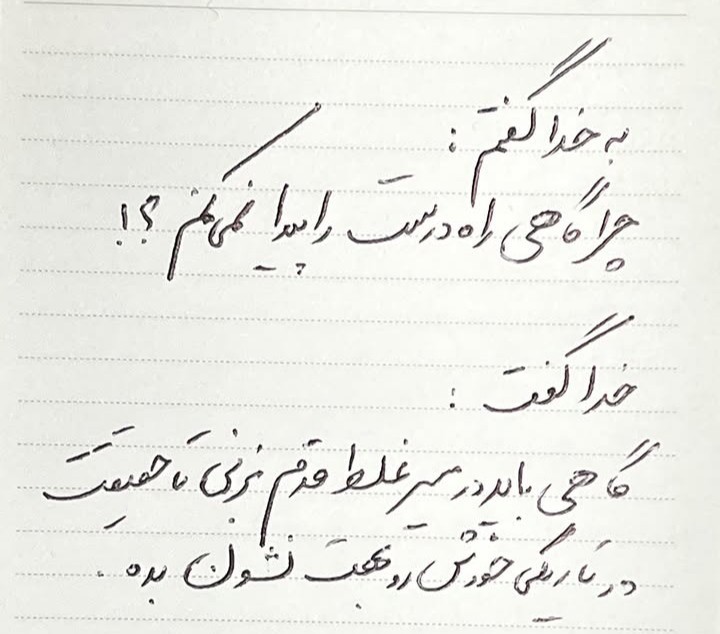 به خدا گفتم :
چرا گاهی راه درست را پیدا نمی‌کنم ؟!
خدا گفت :
گاهی باید در مسیر غلط قدم بزنی تا حقیقت
در تاریکی خودش رو بهت نشون بده .